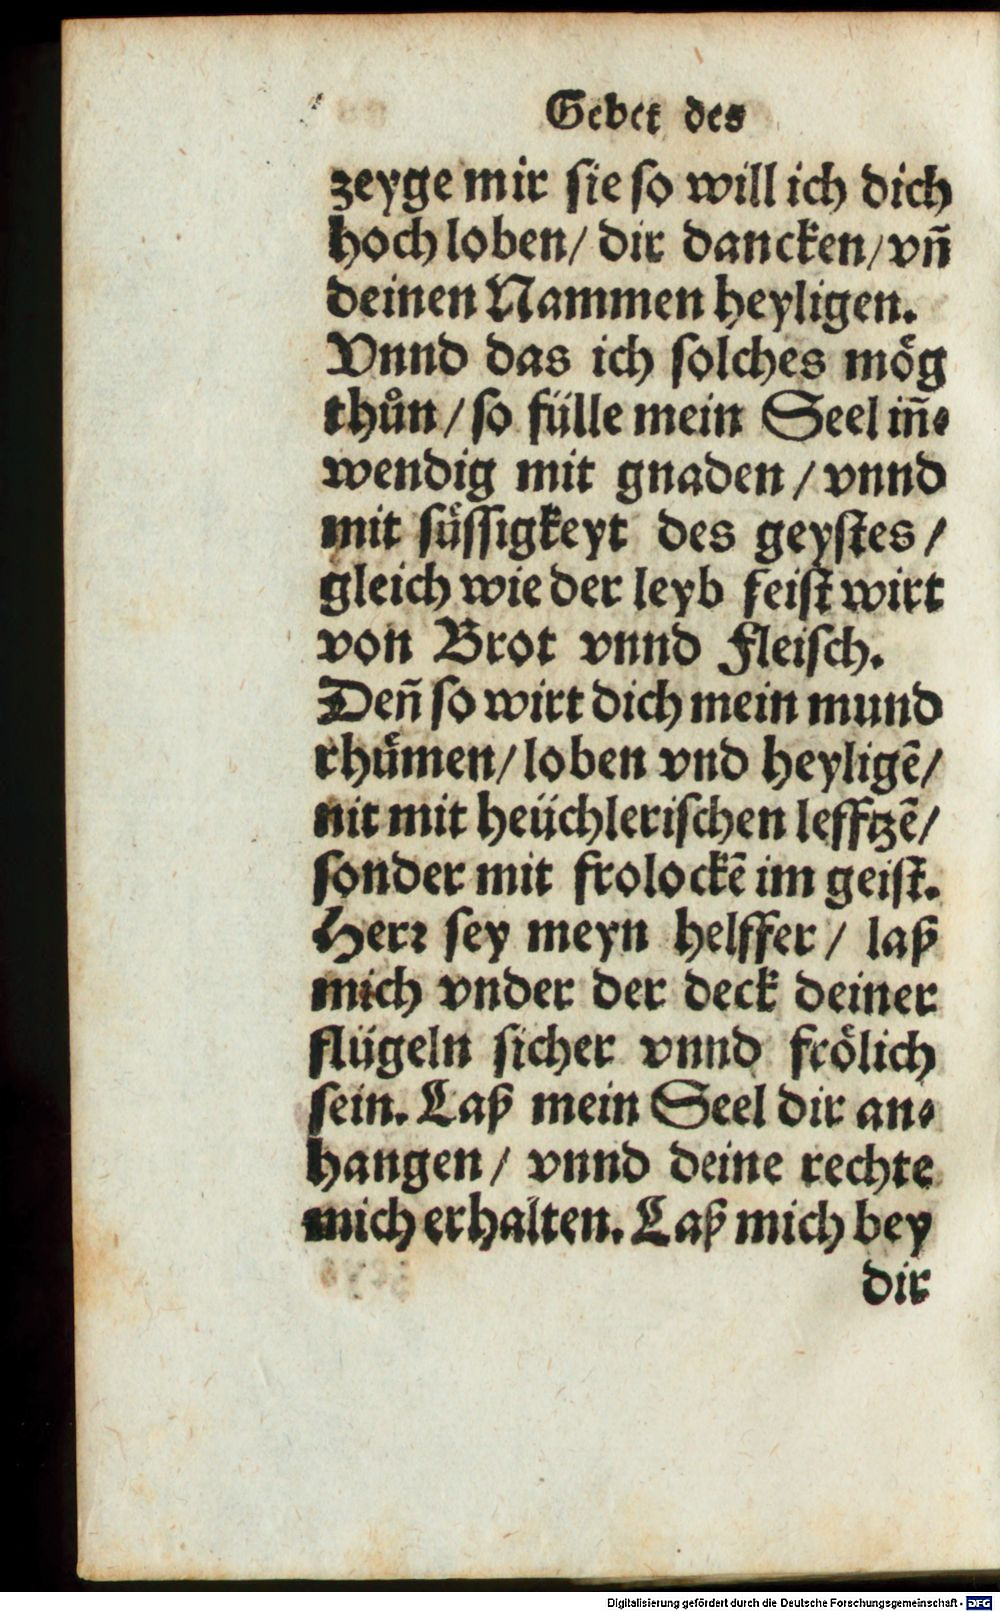 Gebet des
zeyge mir sie so will ich dich
hoch loben/ dir dancken/ vñ
deinen Nammen heyligen.
Vnnd das ich solches mög
thůn / so fülle mein Seel iñ⸗
wendig mit gnaden / vnnd
mit süssigkeyt des geystes /
gleich wie der leyb feist wirt
von Brot vnnd Fleisch.
Deñ so wirt dich mein mund
rhümen/ loben vnd heyligẽ/
nit mit heüchlerischen lefftzẽ/
sonder mit frolockẽ im geist.
Herr sey meyn helffer / laß
mich vnder der deck deiner
flügeln sicher vnnd frölich
sein. Laß mein Seel dir an⸗
hangen / vnnd deine rechte
mich erhalten. Laß mich bey
dir
Digitalisierung gefördert durch die Deutsche Forschungsgemeinschaft - DFG